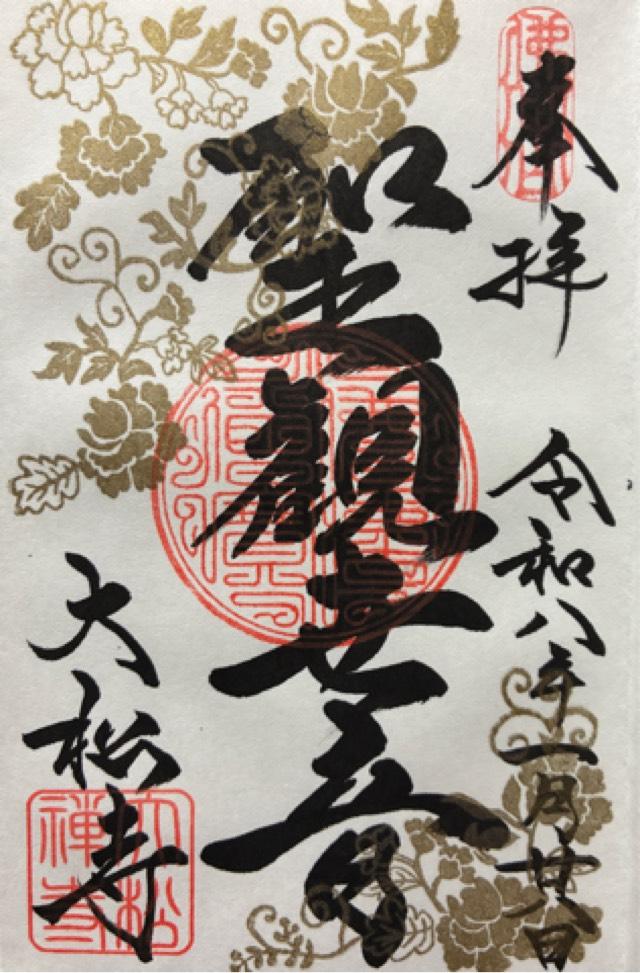 奉拝
令和八年一月廿八日
聖観世音
大松寺
大松禪寺